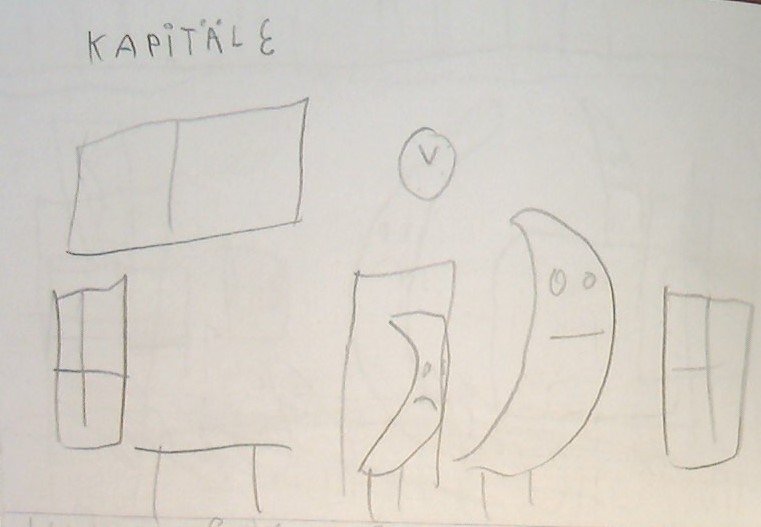 KAPITÄLE